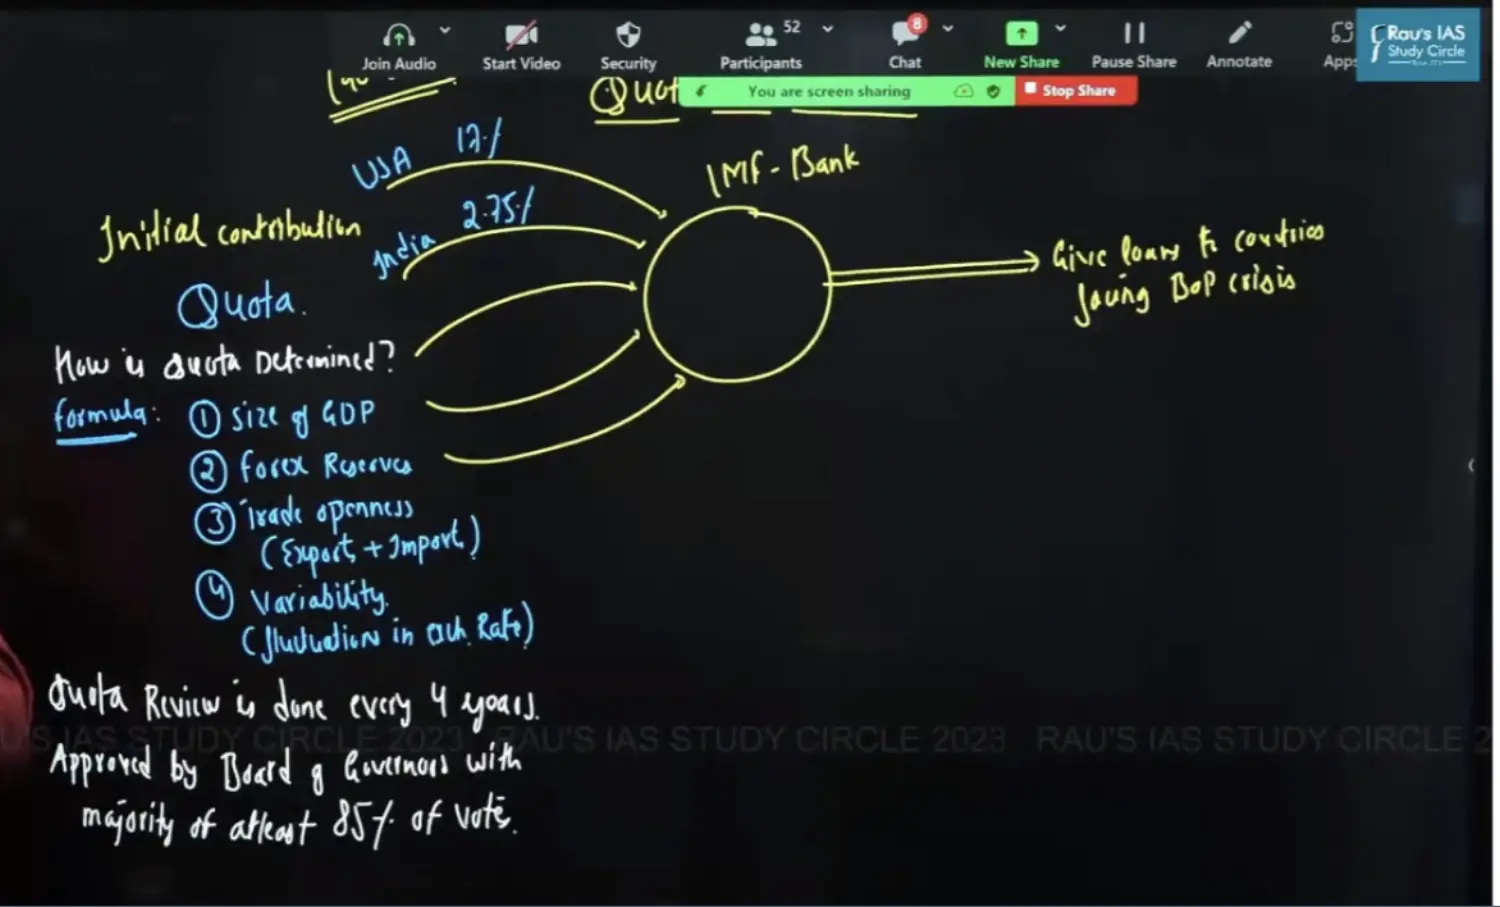 52
8
Join Audio
Start Video
Security
Participants
Chat
New Share
Pause Share
Annotate
Apps
Rau's IAS
Study Circle
Quot
You are screen sharing
Stop Share
USA 17%
IMF - Bank
Initial contribution
India 2.75%
Give loans to countries
facing BoP crisis
Quota.
How is Quota Determined?
formula: ① Size of GDP
② Forex Reserves
③ Trade openness
(Export + Import)
④ Variability.
(fluctuation in exch. Rate)
Quota Review is done every 4 years.
RAU'S IAS STUDY CIRCLE 2023 RAU'S IAS STUDY CIRCLE 2023 RAU'S IAS STUDY CIRCLE 2
Approved by Board of Governors with
majority of atleast 85% of Vote.